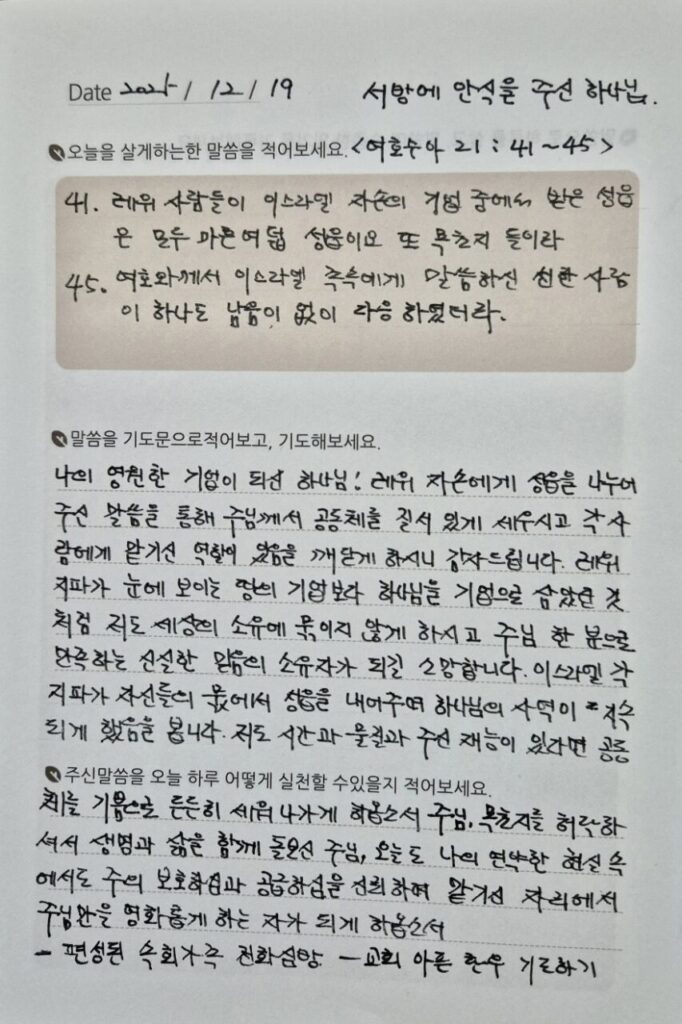 Date 2025 / 12 / 19 서방에 안식을 주신 하나님.
오늘을 살게하는한 말씀을 적어보세요. <여호수아 21 : 41 ~ 45>
41. 레위 사람들이 이스라엘 자손의 기업 중에서 받은 성읍
은 모두 마흔여덟 성읍이요 또 목초지 들이라
45. 여호와께서 이스라엘 족속에게 말씀하신 선한 사람
이 하나도 남음이 없이 다 응하였더라.
말씀을 기도문으로적어보고, 기도해보세요.
나의 영원한 기업이 되신 하나님! 레위 자손에게 성읍을 나누어
주신 말씀을 통해 주님께서 공동체를 질서 있게 세우시고 각 사
람에게 맡기신 역할이 있음을 깨닫게 하시니 감사드립니다. 레위
지파가 눈에 보이는 땅의 기업보다 하나님을 기업으로 삼았던 것
처럼 저도 세상의 소유에 묶이지 않게 하시고 주님 한 분으로
만족하는 신실한 믿음의 소유자가 되길 소망합니다. 이스라엘 각
지파가 자신들의 몫에서 성읍을 내어주며 하나님의 사역이 지속
되게 했음을 봅니다. 저도 시간과 물질과 주신 재능이 있다면 공동
주신말씀을 오늘 하루 어떻게 실천할 수있을지 적어보세요.
체를 기쁨으로 든든히 세워 나가게 하옵소서 주님, 목초지를 허락하
셔서 생명과 삶을 함께 돌보신 주님, 오늘도 나의 연약한 현실 속
에서도 주의 보호하심과 공급하심을 신뢰하며 맡기신 자리에서
주님만을 영화롭게 하는 자가 되게 하옵소서
- 편성된 속회가족 전화심방 - 교회 아픈 환우 기도하기